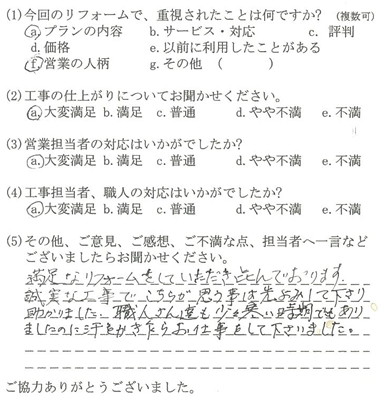 (1)今回のリフォームで、重視されたことは何ですか? (複数可)
a.プランの内容 b.サービス・対応 c. 評判
d.価格 e.以前に利用したことがある
f.営業の人柄 g.その他 ( )
(2)工事の仕上がりについてお聞かせください。
a.大変満足 b.満足 c.普通 d.やや不満 e.不満
(3)営業担当者の対応はいかがでしたか?
a.大変満足 b.満足 c.普通 d.やや不満 e.不満
(4)工事担当者、職人の対応はいかがでしたか?
a.大変満足 b.満足 c.普通 d.やや不満 e.不満
(5)その他、ご意見、ご感想、ご不満な点、担当者へ一言など
ございましたらお聞かせください。
満足なリフォームをしていただき喜んでおります。
誠実な工事でこちらが思う事は先よみして下さり
助かりました。職人さん達も少々寒い時期でもあり
ましたのに汗をかきたらお仕事をして下さいました。
ご協力ありがとうございました。